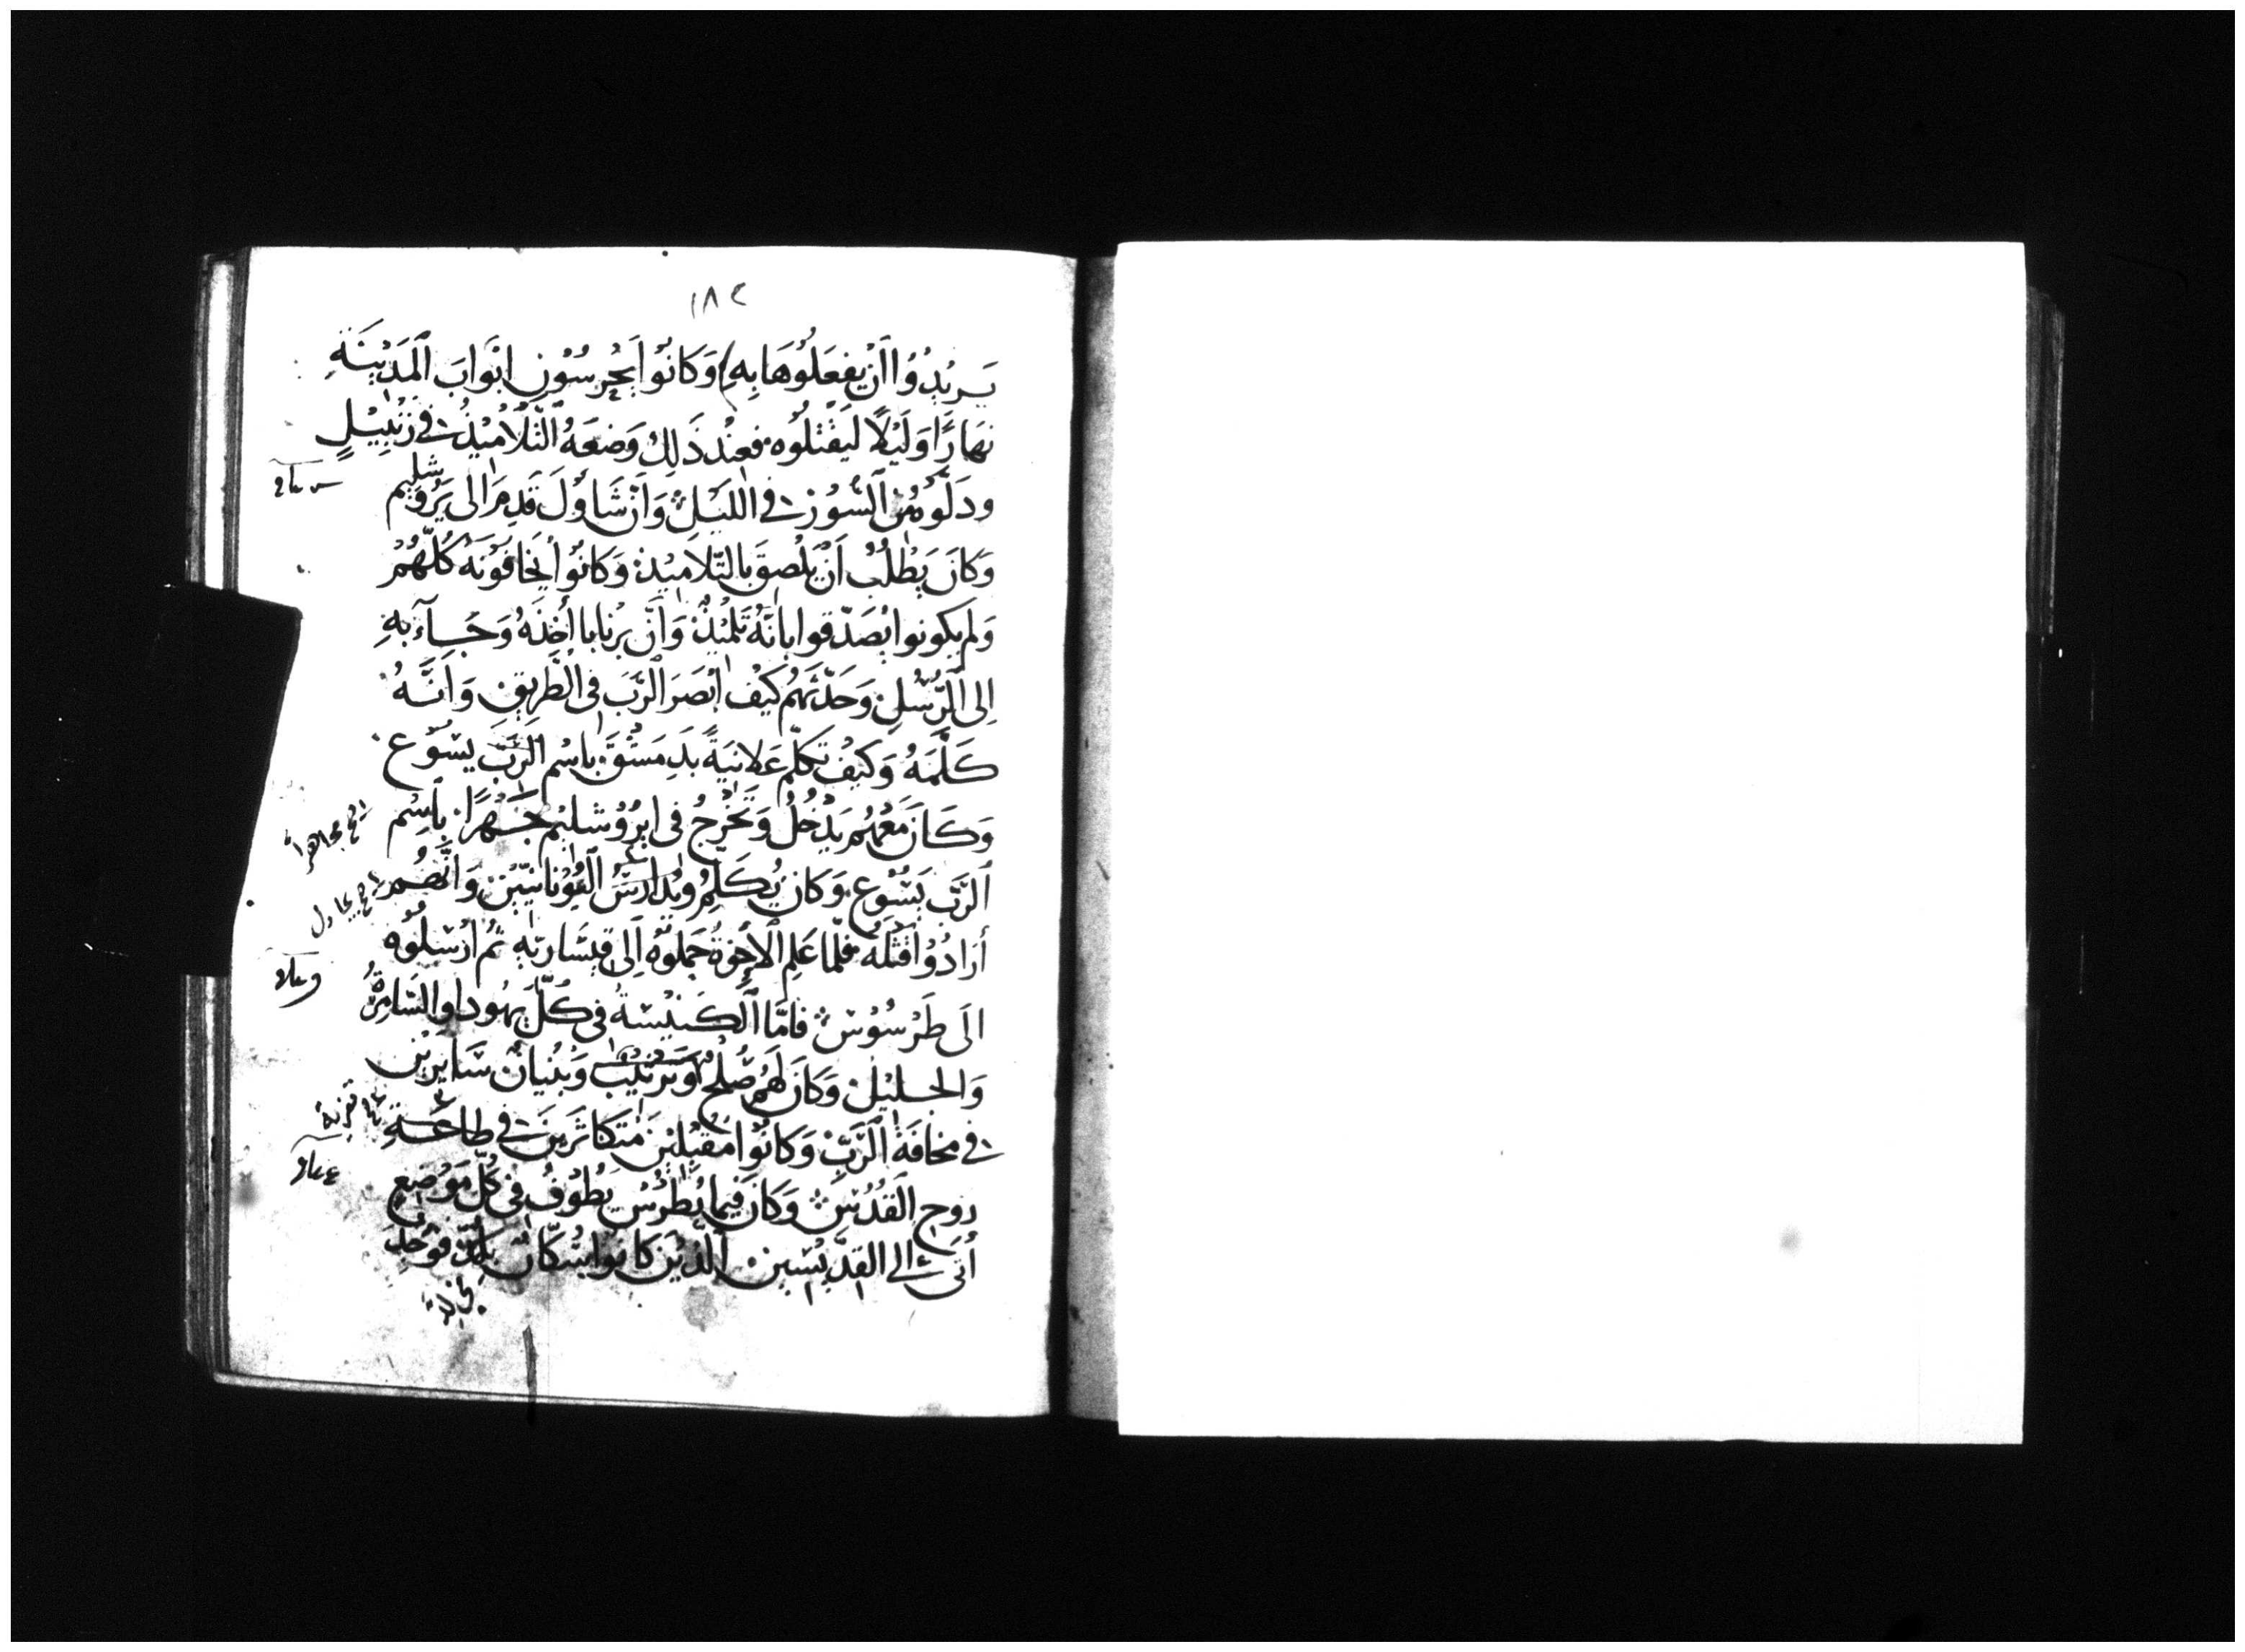 ١٨٤
يريدوا ان يفعلوها به وكانوا يحرسون ابواب المدينة
نهارًا وليلًا ليقتلوه فعند ذلك وضعه التلاميذ في زنبيلٍ
ودلوه من السور في الليل وان شاول قدم الى يروشليم
وكان يطلب ان يلصق بالتلاميذ وكانوا يخافونه كلهم
ولم يكونوا يصدقوا بانه تلميذ وان برنابا أخذه وجآء به
الى الرسل وحدثهم كيف ابصر الرب في الطريق وانه
كلمه وكيف تكلم علانيةً بدمشق باسم الرب يسوع
وكان معهم يدخل ويخرج في ايروشليم جهرًا باسم
الرب يسوع وكان يكلم ويدارس اليونانيين وانهم
أرادوا قتله فلما علم الاخوة حملوه الى قيساريه ثم ارسلوه
الى طرسوس فاما الكنيسة في كل يهودا والسامرة
والجليل وكان لهم صلح وترتيب وبنيان سايرين
في مخافة الرب وكانوا مقبلين متكاثرين في طاعة
روح القدس وكان فيما بطرس يطوف في كل موضع
أتى الى القديسين الذين كانوا سكان بلد فوجد